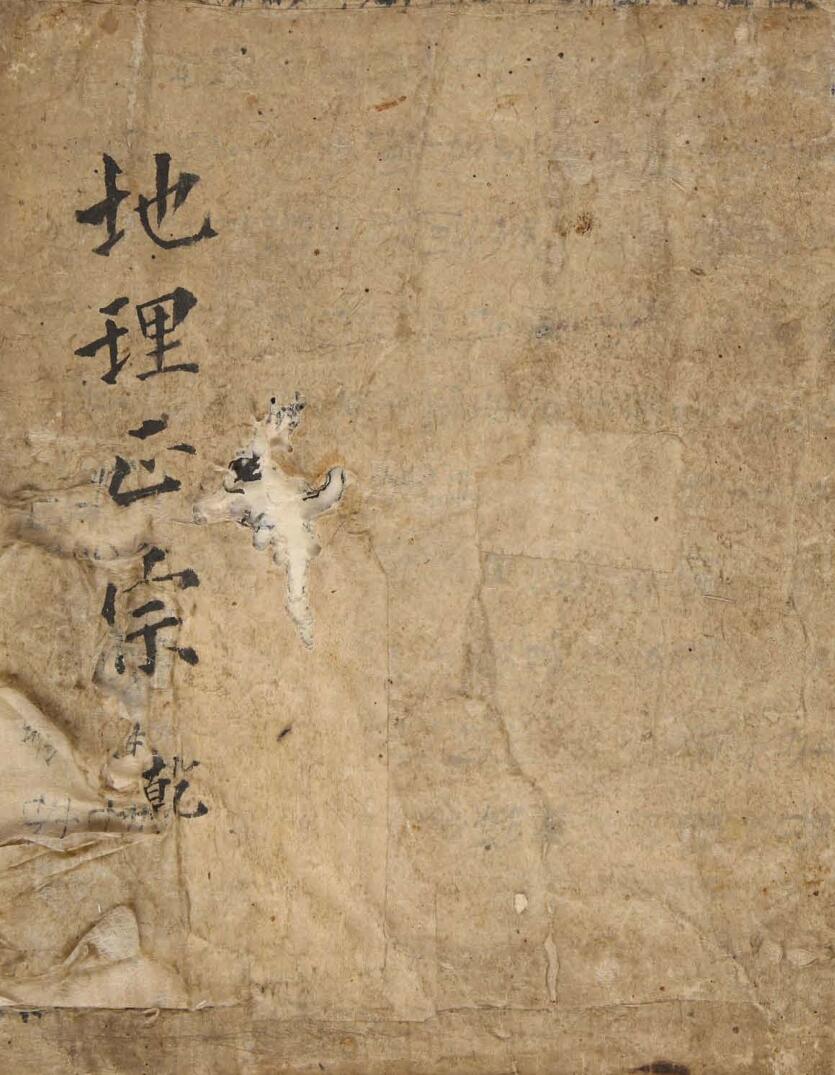 地理正宗 乾